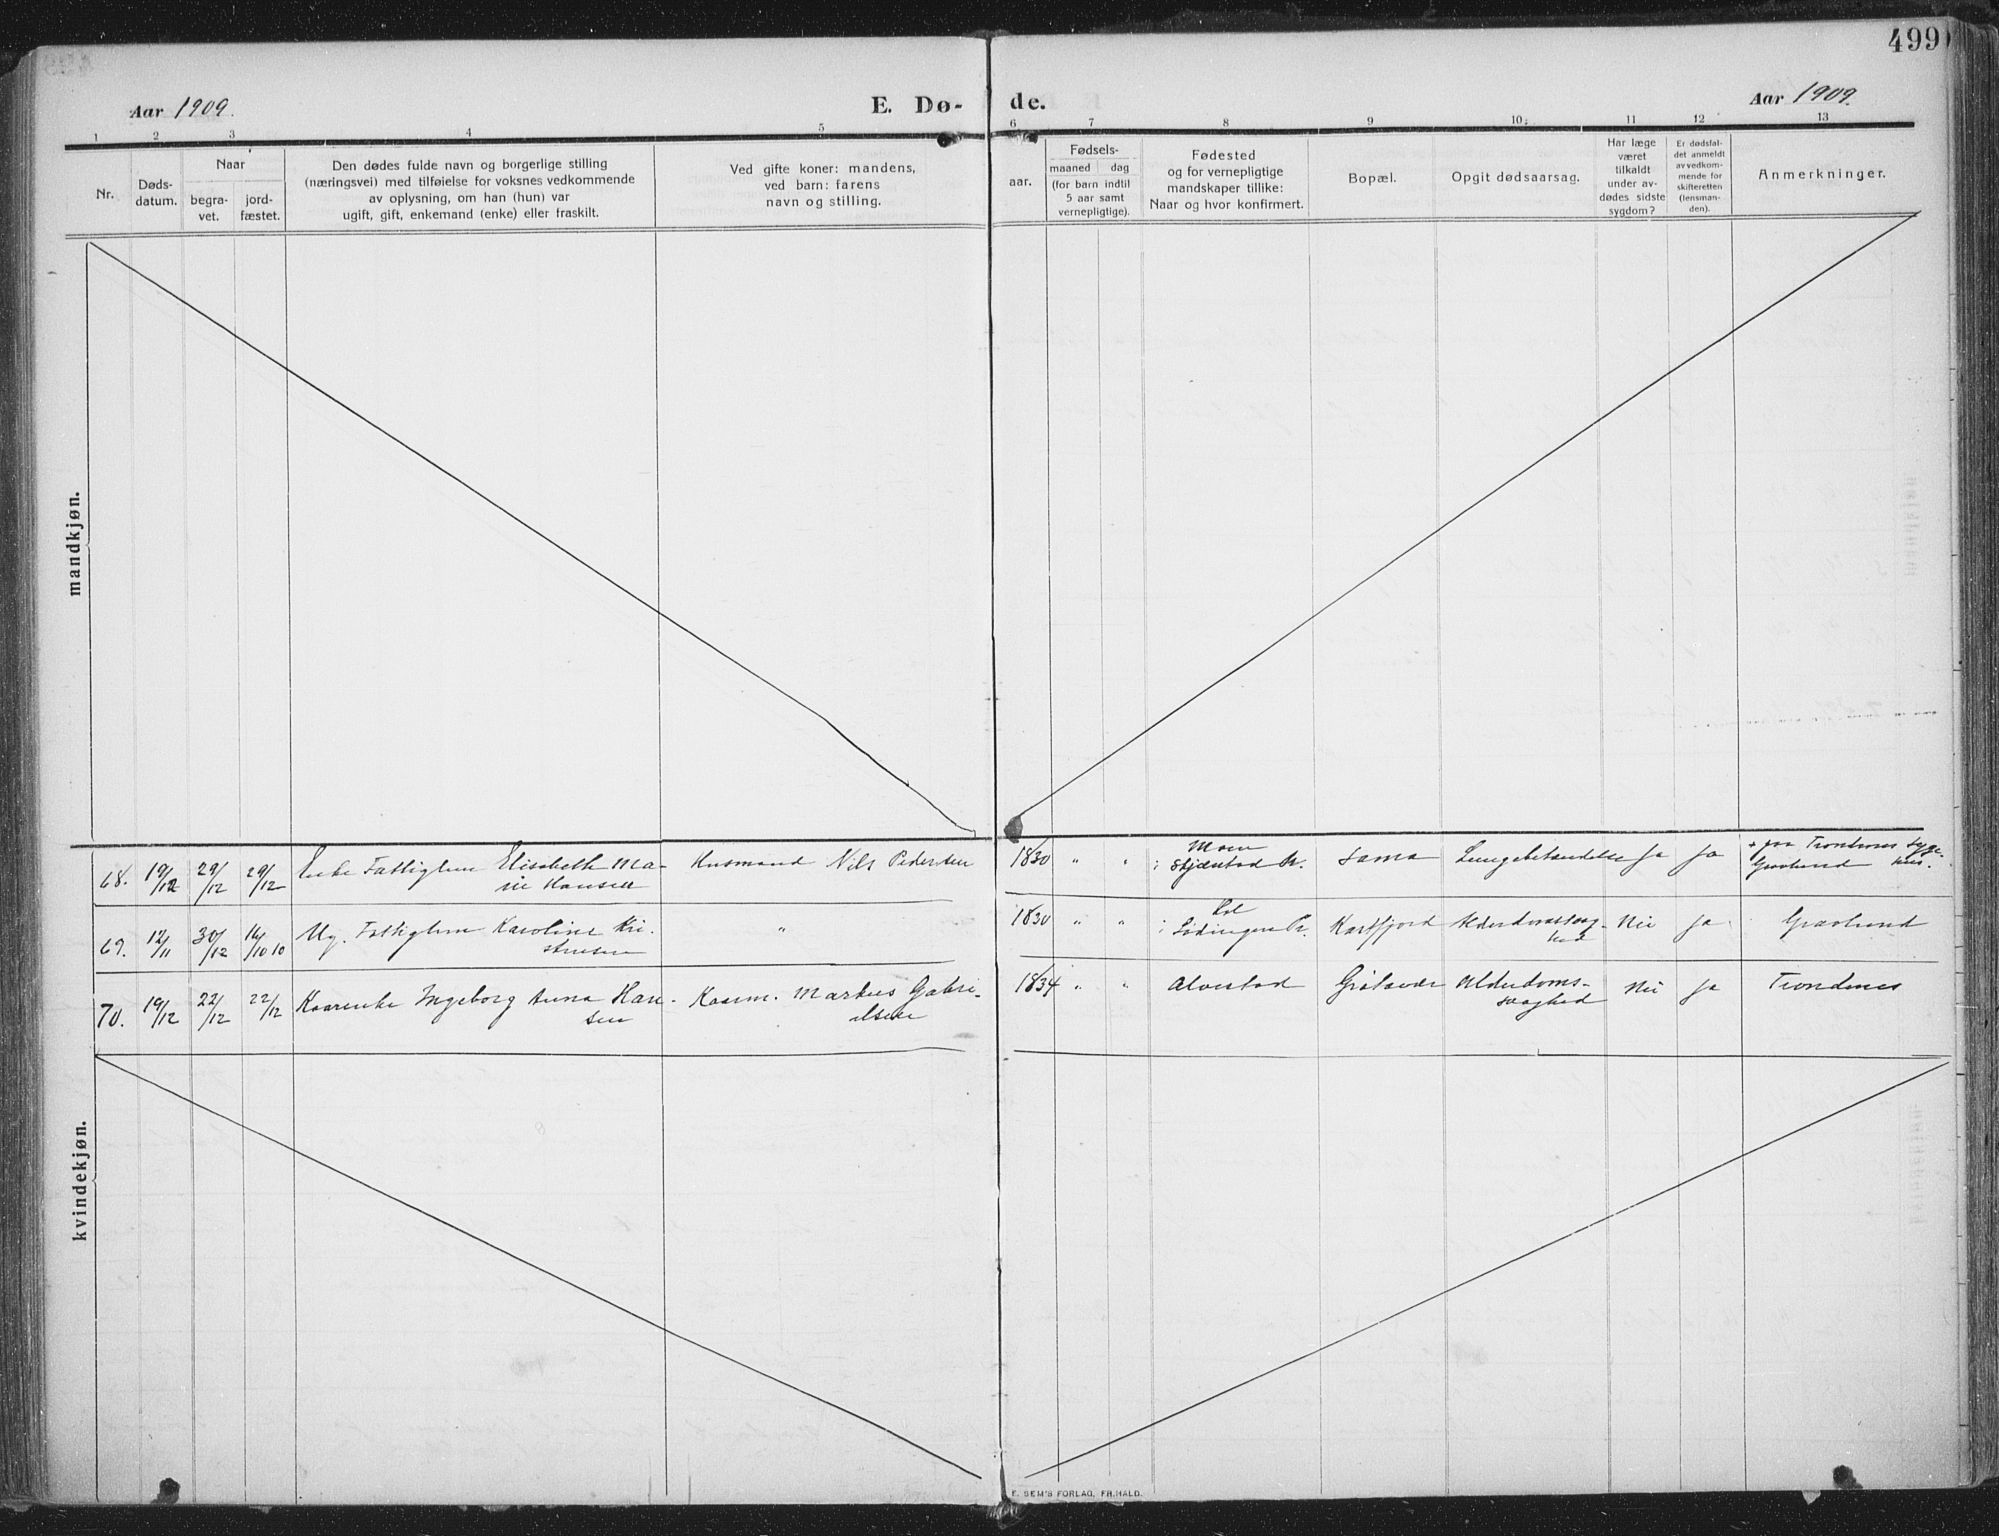 499
Aar 1909.
E. Dø-
de.
Aar 1909.
1 2 3 4 5 6 7 8 9 10 11 12 13
Nr.
Døds-
datum.
Naar
begra-
vet.
jord-
fæstet.
Den dødes fulde navn og borgerlige stilling
(næringsvei) med tilføielse for voksnes vedkommende
av oplysning, om han (hun) var
ugift, gift, enkemand (enke) eller fraskilt.
Ved gifte koner: mandens,
ved barn: farens
navn og stilling.
aar.
Fødsels-
maaned dag
(for barn indtil
5 aar samt
vernepligtige).
Fødested
og for vernepligtige
mandskaper tillike:
Naar og hvor konfirmert.
Bopæl.
Opgit dødsaarsag.
Har læge
været
tilkaldt
under av-
dødes sidste
sygdom?
Er dødsfal-
det anmeldt
av vedkom-
mende for
skifteretten
(lensman-
den).
Anmerkninger.
mandkjøn.
kvindekjøn.
68. 19/12 29/12 29/12 Enke Fattiglem Elisabeth Ma-
rie Hansen
Husmand Nils Pedersen
1830 " " Moen
i Skjænstad Pr. Sama Lungebetændelse Ja Ja + paa Trondenes Syge-
hus.
Gravlund
69. 12/11 30/12 16/10 10 Ug. Fattiglem Karoline Kri-
stensen
"
1830 " " Kol
i Lødingen Pr. Kastfjord Alderdomssvag-
hed
Nei Ja Gravlund
70. 19/12 22/12 22/12 Kaarenke Ingeborg Anna Han-
sen
Kaarm. Markus Gabri-
elsen
1834 " " Alvestad Grøtavær Alderdoms-
svaghed
Nei Ja Trondenes
E. SEM'S FORLAG, FR.HALD.